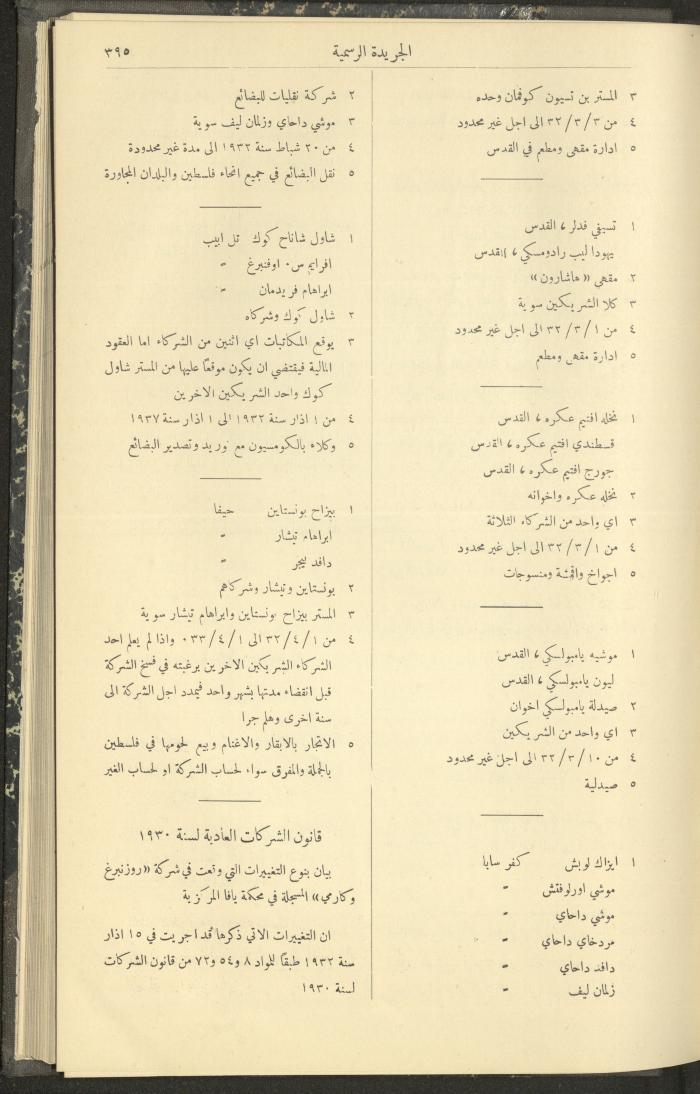 الجريدة الرسمية
٣٩٥
٣ المستر بن تسيون كوفمان وحده
٤ من ٣/٣/٣٢ الى اجل غير محدود
٥ ادارة مقهى ومطعم في القدس
١ تسيفي فدلر، القدس
يهودا ليب رادومسكي، القدس
٢ مقهى «هاشارون»
٣ كلا الشريكين سوية
٤ من ١/٣/٣٢ الى اجل غير محدود
٥ ادارة مقهى ومطعم
١ نخله افتيم عكره، القدس
قسطندي افتيم عكره، القدس
جورج افتيم عكره، القدس
٢ نخله عكره واخوانه
٣ اي واحد من الشركاء الثلاثة
٤ من ١/٣/٣٢ الى اجل غير محدود
٥ اجواخ واقمشة ومنسوجات
١ موشيه يامبولسكي، القدس
ليون يامبولسكي، القدس
٢ صيدلة يامبولسكي اخوان
٣ اي واحد من الشريكين
٤ من ١٠/٣/٣٢ الى اجل غير محدود
٥ صيدلية
١ ايزاك لوبش كفر سابا
موشي اورلوفتش "
موشي داحاي "
مردخاي داحاي "
دافد داحاي "
زلمان ليف "
٢ شركة نقليات للبضائع
٣ موشي داحاي وزلمان ليف سوية
٤ من ٢٠ شباط سنة ١٩٣٢ الى مدة غير محدودة
٥ نقل البضائع في جميع انحاء فلسطين والبلدان المجاورة
١ شاول شاناح كوك تل ابيب
افرايم س. اوفنبرغ "
ابراهام فريدمان "
٢ شاول كوك وشركاه
٣ يوقع المكاتبات اي اثنين من الشركاء اما العقود
المالية فيقتضي ان يكون موقعاً عليها من المستر شاول
كوك واحد الشريكين الاخرين
٤ من ١ اذار سنة ١٩٣٢ الى ١ اذار سنة ١٩٣٧
٥ وكلاء بالكومسيون مع توريد وتصدير البضائع
١ بيزاح بونستاين حيفا
ابراهام تيشار "
دافد ليجر "
٢ بونستاين وتيشار وشركاهم
٣ المستر بيزاح بونستاين وابراهام تيشار سوية
٤ من ١/٤/٣٢ الى ١/٤/٠٣٣ واذا لم يعلم احد
الشركاء الشريكين الاخرين برغبته في فسخ الشركة
قبل انقضاء مدتها بشهر واحد فيمدد اجل الشركة الى
سنة اخرى وهلم جرا
٥ الاتجار بالابقار والاغنام وبيع لحومها في فلسطين
بالجملة والمفرق سواء لحساب الشركة او لحساب الغير
قانون الشركات العادية لسنة ١٩٣٠
بيان بنوع التغييرات التي وقعت في شركة «روزنبرغ
وكارمي» المسجلة في محكمة يافا المركزية
ان التغييرات الاتي ذكرها قد اجريت في ١٥ اذار
سنة ١٩٣٢ طبقاً للمواد ٨ و٥٤ و٧٢ من قانون الشركات
لسنة ١٩٣٠